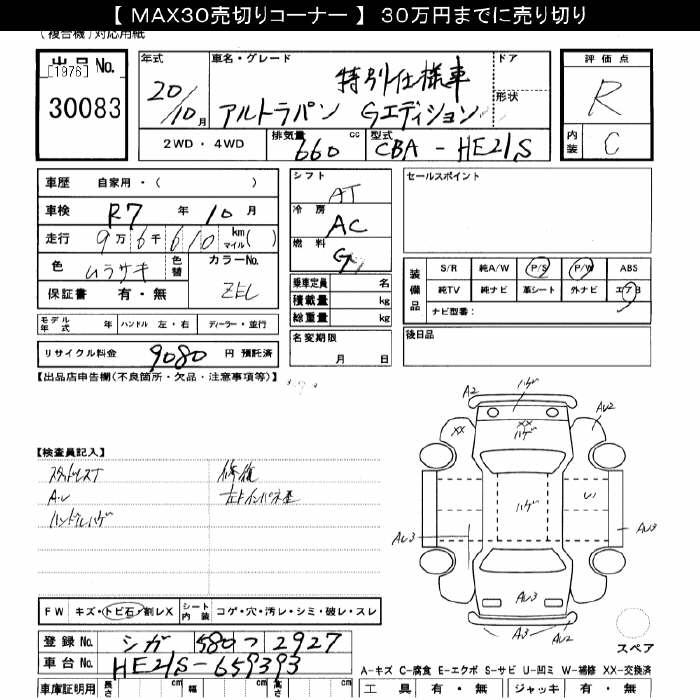 【 MAX30売切りコーナー 】 30万円までに売り切り
(複合機)対応用紙
出品 No.
[1976]
30083
年式
20/10月
車名・グレード
特別仕様車
アルトラパン Gエディション
ドア
形状
2WD ・ 4WD
排気量
660 cc
型式
CBA - HE21S
評価点
R
内装
C
車歴 自家用・( )
車検 R7 年 10 月
走行 9万 6千 610 km マイル( )
色 ムラサキ 色替
カラーNo.
ZEL
保証書 有・無
モデル年式 年 ハンドル 左・右 ディーラー・並行
リサイクル料金 9080 円 預託済
シフト
AT
冷房
AC
燃料
G
乗車定員 名
積載量 kg
総重量 kg
名変期限
月 日
セールスポイント
装備品
S/R 純A/W P/S P/W ABS
純TV 純ナビ 革シート 外ナビ エアB
ナビ型番:
後日品
【出品店申告欄(不良箇所・欠品・注意事項等)】
【検査員記入】
スタッドレス
修復
A.U
ハンドルハゲ
A2
ハゲ
XX
XX
ハゲ
AU2
ハゲ
AU3
AU3
AU3
A3
AU2
スペア
FW キズ・トビ石・割レX シート内装 コゲ・穴・汚レ・シミ・破レ・スレ
登録 No. シガ 580 つ 2927
車台 No. HE21S-659393
車庫証明用 長さ cm 幅 cm 高さ cm
A-キズ C-腐食 E-エクボ S-サビ U-凹ミ W-補修 XX-交換済
工具 有・無 ジャッキ 有・無